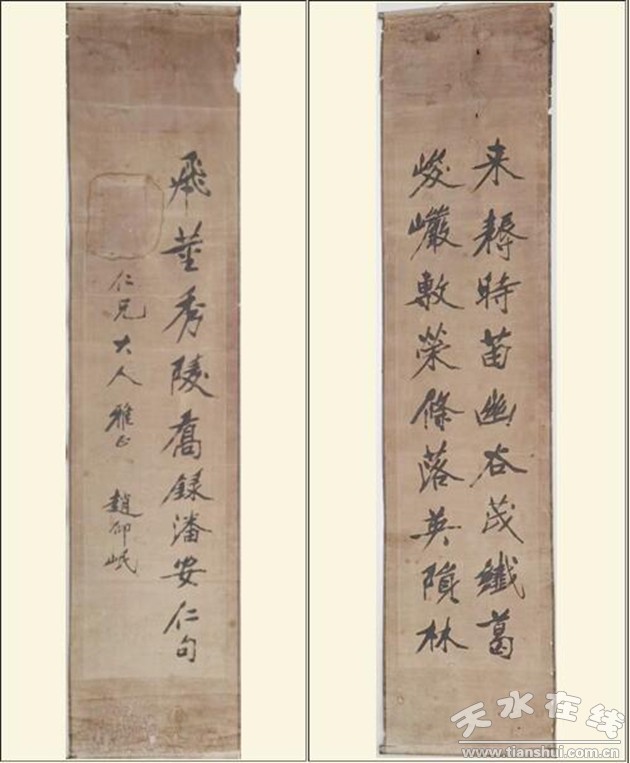 来耨時苗幽谷茂纖葛
峻巖敷榮條落英隕林
飛莖秀陵喬録潘安仁句
仁兄大人雅正 趙仰岷
天水在线
www.tianshui.com.cn